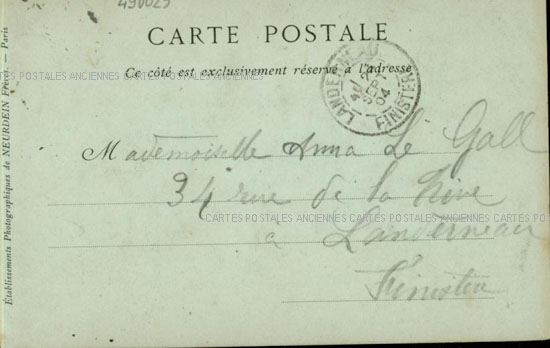 490025
CARTE POSTALE
Ce côté est exclusivement réservé à l'adresse
CARTES POSTALES ANCIENNES CARTES POSTALES ANCIENNES CARTES POSTALES ANCIENNES CARTES POSTALES
LANDERNEAU
2
SEPT
04
FINISTERE
Mademoiselle Anna Le Gall
34 rue de la Rive
CARTES POSTALES ANCIENNES CARTES POSTALES ANCIENNES CARTES POSTALES
à Landerneau
Finistère
Établissements Photographiques de NEURDEIN Frères. — Paris